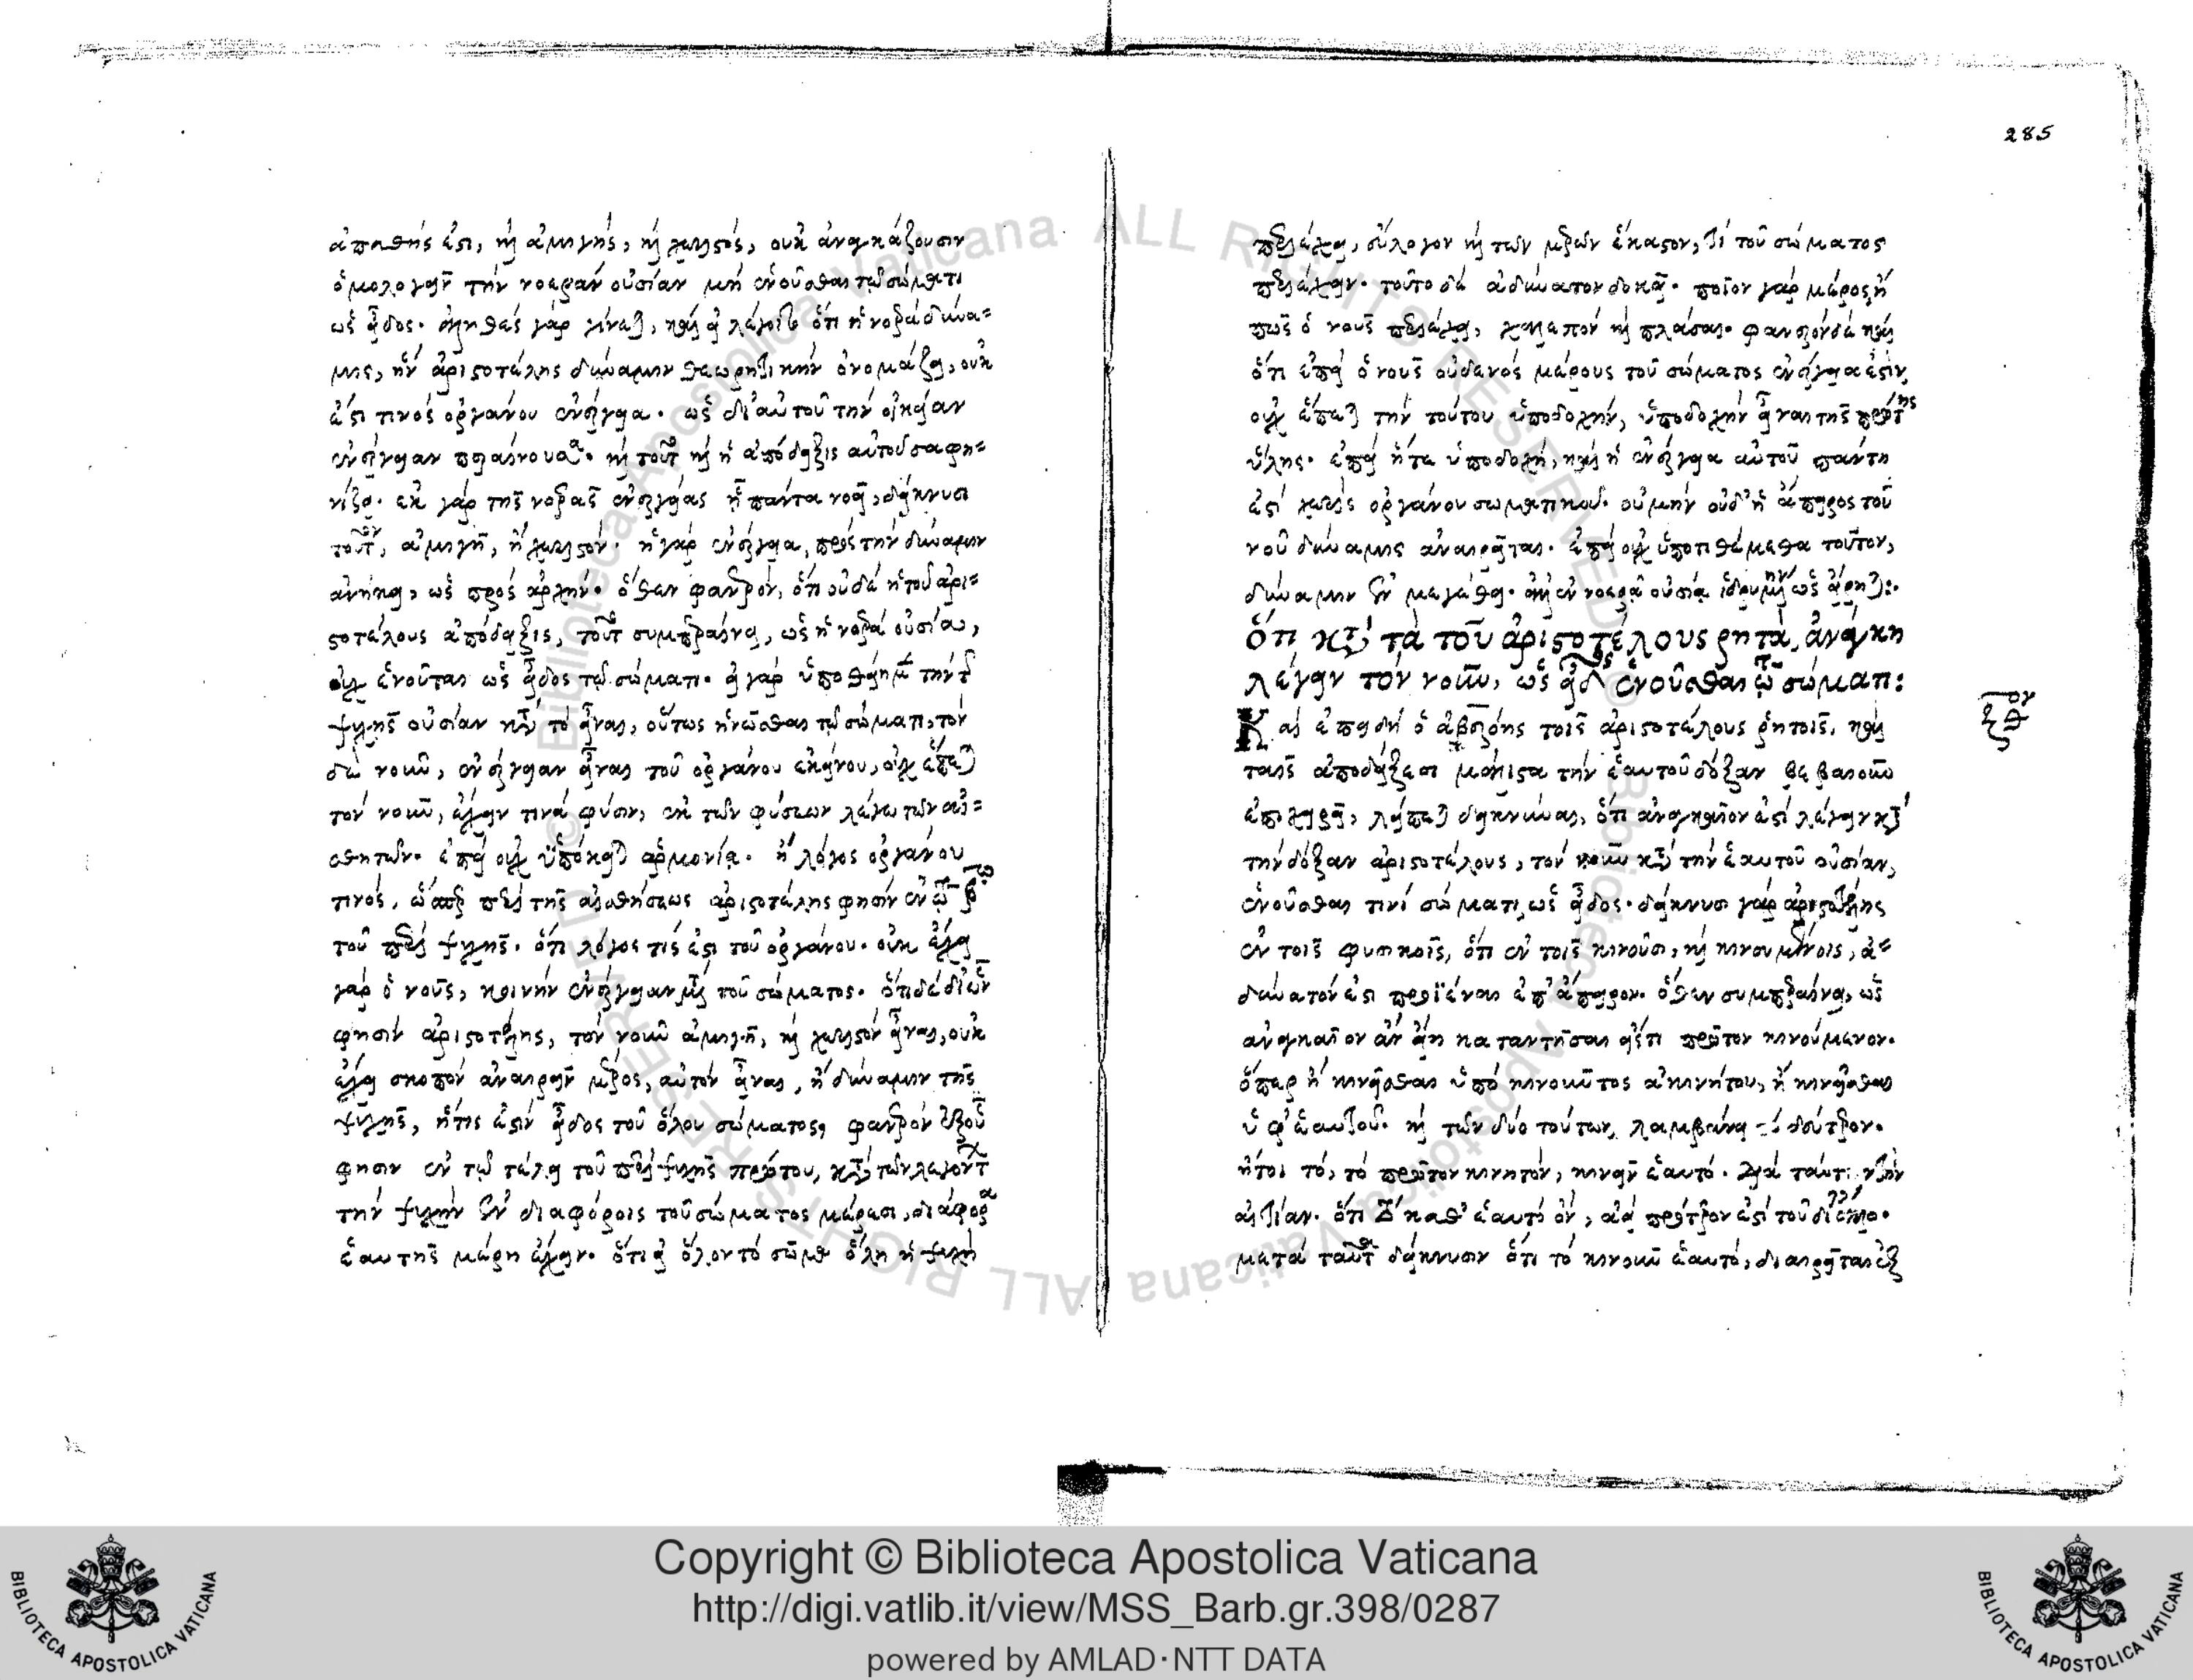 ἀπαθής ἐστι, καὶ ἀμιγής, καὶ χωριστός, οὐκ ἀναγκάζουσιν
ὁμολογεῖν τὴν νοερὰν οὐσίαν μὴ ἑνοῦσθαι τῷ σώματι
ὡς εἶδος. ἀληθὲς γάρ γίνεται, καὶ εἰ λέγοιτο ὅτι ἡ νοερὰ δύνα=
μις, ἣν ἀριστοτέλης δύναμιν θεωρητικὴν ὀνομάζει, οὐκ
ἔστι τινὸς ὀργάνου ἐνέργεια. ὡς δι' αὐτοῦ τὴν οἰκείαν
ἐνέργειαν περαίνουσα. καὶ τοῦτο καὶ ἡ ἀπόδειξις αὐτοῦ σαφη=
νίζει. ἐκ γὰρ τῆς νοερᾶς ἐνεργείας ᾗ πάντα νοεῖ, δείκνυσι
τοῦτον, ἀμιγῆ, ἢ χωριστόν. ἡ γὰρ ἐνέργεια, πρὸς τὴν δύναμιν
ἀνήκει, ὡς πρὸς ἀρχήν. ὅθεν φανερόν, ὅτι οὐδὲ ἡ τοῦ ἀρι=
στοτέλους ἀπόδειξις, τοῦτο συμπεραίνει, ὡς ἡ νοερὰ οὐσία,
οὐχ ἑνοῦται ὡς εἶδος τῷ σώματι. εἰ γὰρ ὑποθείημεν τὴν τῆς
ψυχῆς οὐσίαν κατὰ τὸ εἶναι, οὕτως ἡνῶσθαι τῷ σώματι, τὸν
δὲ νοῦν, ἐνέργειαν εἶναι τοῦ ὀργάνου ἐκείνου, οὐχ ἕπεται
τὸν νοῦν, ἔχειν τινὰ φύσιν, ἐκ τῶν φύσεων λέγω τῶν αἰ=
σθητῶν. ἐπεὶ οὐχ ὑπόκειται ἁρμονία. ἢ λόγος ὀργάνου
τινός, ὥσπερ περὶ τῆς αἰσθήσεως ἀριστοτέλης φησὶν ἐν τῷ βῳ
τοῦ περὶ ψυχῆς. ὅτι λόγος τίς ἐστι τοῦ ὀργάνου. οὐκ ἔχει
γὰρ ὁ νοῦς, κοινὴν ἐνέργειαν μετὰ τοῦ σώματος. ὅτι δὲ δι' ὧν
φησὶν ἀριστοτέλης, τὸν νοῦν ἀμιγῆ, καὶ χωριστὸν εἶναι, οὐκ
ἔχει σκοπὸν ἀναιρεῖν μέρος, αὐτὸν εἶναι, ἢ δύναμιν τῆς
ψυχῆς, ἥτις ἐστὶν εἶδος τοῦ ὅλου σώματος, φανερὸν ἐξ οὗ
φησιν ἐν τῷ τέλει τοῦ περὶ ψυχῆς πρώτου, κατὰ τῶν λεγόντων
τὴν ψυχὴν ἐν διαφόροις τοῦ σώματος μέρεσι, διάφορα
ἑαυτῆς μέρη ἔχειν. ὅτι εἰ ὅλον τὸ σῶμα ὅλη ἡ ψυχὴ
285
περιέχει, εὔλογον καὶ τῶν μερῶν ἕκαστον, τὶ τοῦ σώματος
περιέχειν. τοῦτο δὲ ἀδύνατον δοκεῖ. ποῖον γὰρ μέρος ἢ
πῶς ὁ νοῦς περιέχει, χαλεπὸν καὶ πλάσαι. φανερὸν δὲ καὶ
ὅτι ἐπεὶ ὁ νοῦς οὐδενὸς μέρους τοῦ σώματος ἐνέργεια ἐστὶν,
οὐχ ἕπεται τὴν τούτου ὑποδοχήν, ὑποδοχὴν εἶναι τῆς πρώτης
ὕλης. ἐπεὶ ἥτε ὑποδοχή, καὶ ἡ ἐνέργεια αὐτοῦ πάντη
ἐστὶ χωρὶς ὀργάνου σωματικοῦ. οὐ μὴν οὐδ' ἡ ἄπειρος τοῦ
νοῦ δύναμις ἀναιρεῖται. ἐπεὶ οὐχ ὑποτιθέμεθα τοῦτον,
δύναμιν ἐν μεγέθει. ἀλλ' ἐν νοερᾷ οὐσίᾳ ἱδρυμένην ὡς εἴρηται:.
Ὅτι κατὰ τὰ τοῦ ἀριστοτέλους ῥητά, ἀνάγκη
λέγειν τὸν νοῦν, ὡς εἶδος ἑνοῦσθαι τῷ σώματι:
ξθον
Καὶ ἐπειδὴ ὁ ἀβερόης τοῖς ἀριστοτέλους ῥητοῖς, καὶ
ταῖς ἀποδείξεσι μάλιστα τὴν ἑαυτοῦ δόξαν βεβαιοῦν
ἐπιχειρεῖ, λείπεται δεικνύναι, ὅτι ἀναγκαῖον ἐστὶ λέγειν κατὰ
τὴν δόξαν ἀριστοτέλους, τὸν νοῦν κατὰ τὴν ἑαυτοῦ οὐσίαν,
ἑνοῦσθαι τινὶ σώματι, ὡς εἶδος. δείκνυσι γὰρ ἀριστοτέλης
ἐν τοῖς φυσικοῖς, ὅτι ἐν τοῖς κινοῦσι, καὶ κινουμένοις, ἀ=
δύνατόν ἐστι προϊέναι ἐπ' ἄπειρον. ὅθεν συμπεραίνει, ὡς
ἀναγκαῖον ἂν εἴη καταντῆσαι εἴς τι πρῶτον κινούμενον.
ὅπερ ἢ κινεῖσθαι ὑπὸ κινοῦντος ἀκινήτου, ἢ κινεῖσθαι
ὑφ' ἑαυτοῦ. καὶ τῶν δύο τούτων, λαμβάνει τὸ δεύτερον.
ἤτοι τό, τὸ πρῶτον κινητόν, κινεῖν ἑαυτό. διὰ ταύτην τὴν
αἰτίαν. ὅτι τὸ καθ' ἑαυτὸ ὄν, ἀεὶ πρότερόν ἐστι τοῦ δι' ἄλλο.
μετὰ ταῦτα δείκνυσιν ὅτι τὸ κινοῦν ἑαυτό, διαιρεῖται ἐξ
Copyright © Biblioteca Apostolica Vaticana
http://digi.vatlib.it/view/MSS_Barb.gr.398/0287
powered by AMLAD·NTT DATA